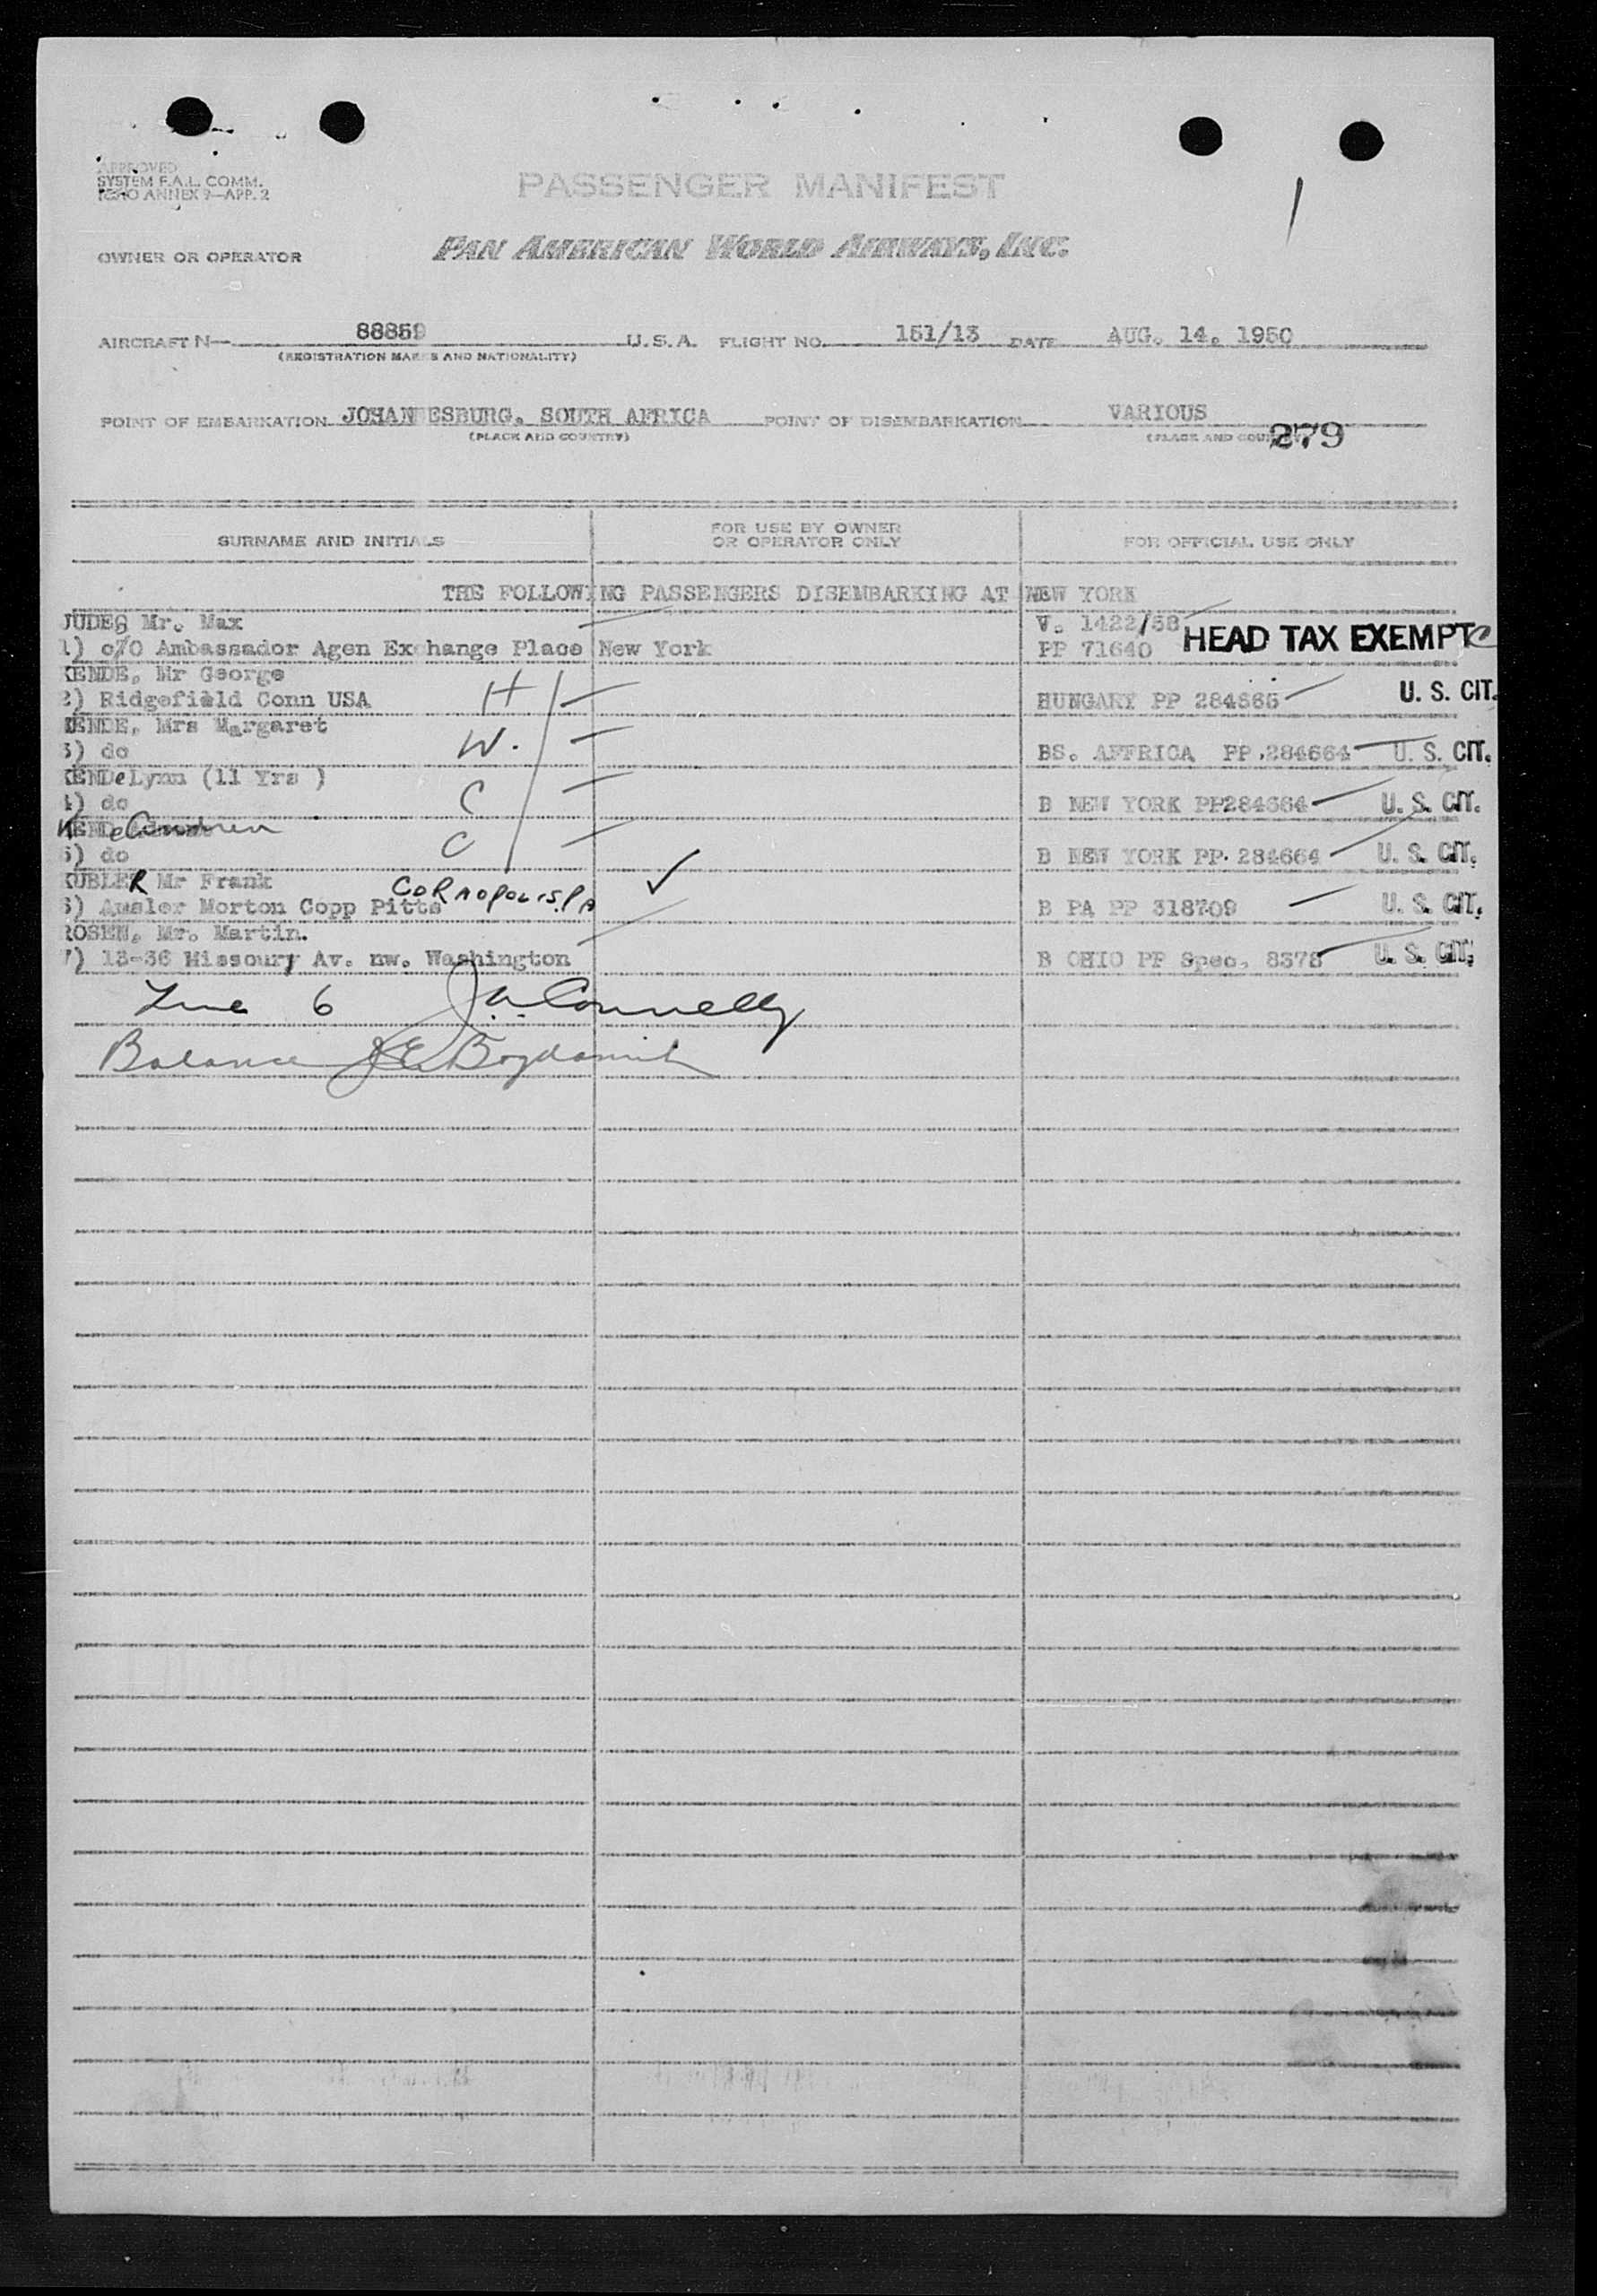 APPROVED
SYSTEM F.A.L. COMM.
ICAO ANNEX 9—APP. 2
PASSENGER MANIFEST
OWNER OR OPERATOR PAN AMERICAN WORLD AIRWAYS, INC.
AIRCRAFT N— 88859 U.S.A. FLIGHT NO. 151/13 DATE AUG. 14, 1950
(REGISTRATION MARKS AND NATIONALITY)
POINT OF EMBARKATION JOHANNESBURG, SOUTH AFRICA POINT OF DISEMBARKATION VARIOUS
(PLACE AND COUNTRY) (PLACE AND COUNTRY) 279
SURNAME AND INITIALS FOR USE BY OWNER OR OPERATOR ONLY FOR OFFICIAL USE ONLY
THE FOLLOWING PASSENGERS DISEMBARKING AT NEW YORK
JUDES Mr. Max V. 1422/58
1) c/O Ambassador Agen Exchange Place New York PP 71640 HEAD TAX EXEMPT
KENDE, Mr George
2) Ridgefield Conn USA H HUNGARY PP 284665 U. S. CIT.
KENDE, Mrs Margaret
3) do W. BS. AFFRICA PP.284664 U. S. CIT.
KENDe Lynn (11 Yrs )
4) do C B NEW YORK PP284664 U. S. CIT.
KENDe
5) do C B NEW YORK PP. 284664 U. S. CIT.
KUBLER Mr Frank
6) Amsler Morton Copp Pitts CORAOPOLIS, PA B PA PP 318709 U. S. CIT.
ROSEN, Mr. Martin.
7) 13-36 Missoury Av. nw. Washington B OHIO PP Spec. 8378 U. S. CIT.
Line 6 J. A. Connelly
Balance